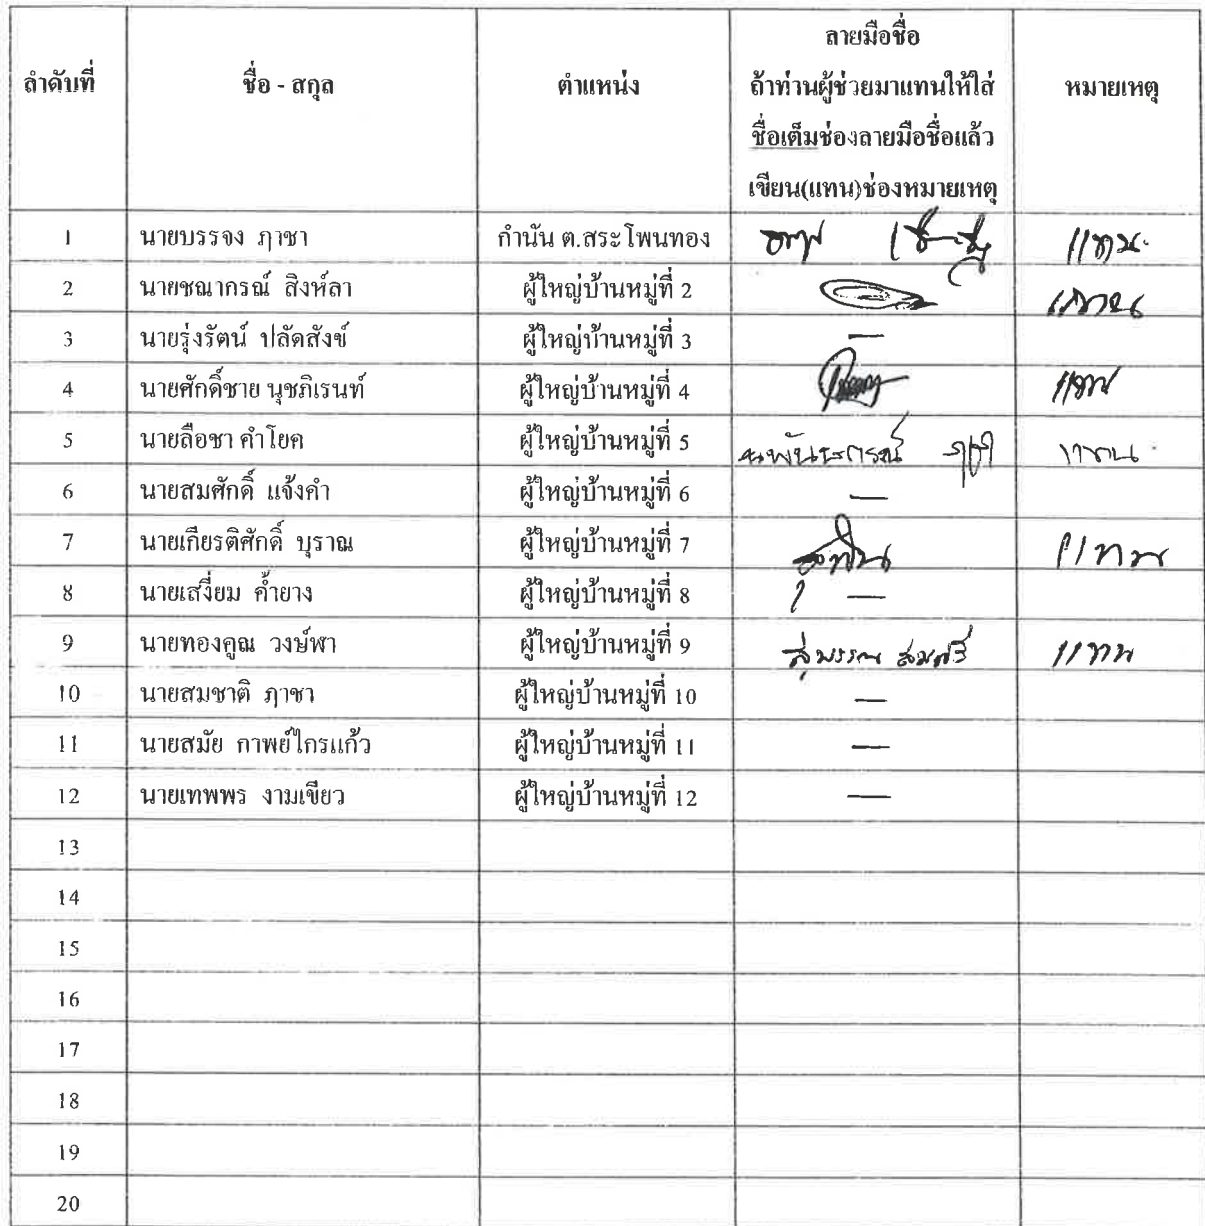 ลำดับที่ ชื่อ - สกุล ตำแหน่ง ลายมือชื่อ หมายเหตุ
ถ้าท่านผู้ช่วยมาแทนให้ใส่
ชื่อเต็มช่องลายมือชื่อแล้ว
เขียน(แทน)ช่องหมายเหตุ
1 นายบรรจง ภาชา กำนัน ต.สระโพนทอง แทน
2 นายชณากรณ์ สิงห์ลา ผู้ใหญ่บ้านหมู่ที่ 2 แทน
3 นายรุ่งรัตน์ ปลัดสังข์ ผู้ใหญ่บ้านหมู่ที่ 3 —
4 นายศักดิ์ชาย นุชภิเรนท์ ผู้ใหญ่บ้านหมู่ที่ 4 แทน
5 นายลือชา คำโยค ผู้ใหญ่บ้านหมู่ที่ 5 แทน
6 นายสมศักดิ์ แจ้งคำ ผู้ใหญ่บ้านหมู่ที่ 6 —
7 นายเกียรติศักดิ์ บุราณ ผู้ใหญ่บ้านหมู่ที่ 7 แทน
8 นายเสงี่ยม ค้ำยาง ผู้ใหญ่บ้านหมู่ที่ 8 —
9 นายทองคูณ วงษ์ฬา ผู้ใหญ่บ้านหมู่ที่ 9 สุพรรณ สมศรี แทน
10 นายสมชาติ ภาชา ผู้ใหญ่บ้านหมู่ที่ 10 —
11 นายสมัย กาพย์ไกรแก้ว ผู้ใหญ่บ้านหมู่ที่ 11 —
12 นายเทพพร งามเขียว ผู้ใหญ่บ้านหมู่ที่ 12 —
13
14
15
16
17
18
19
20